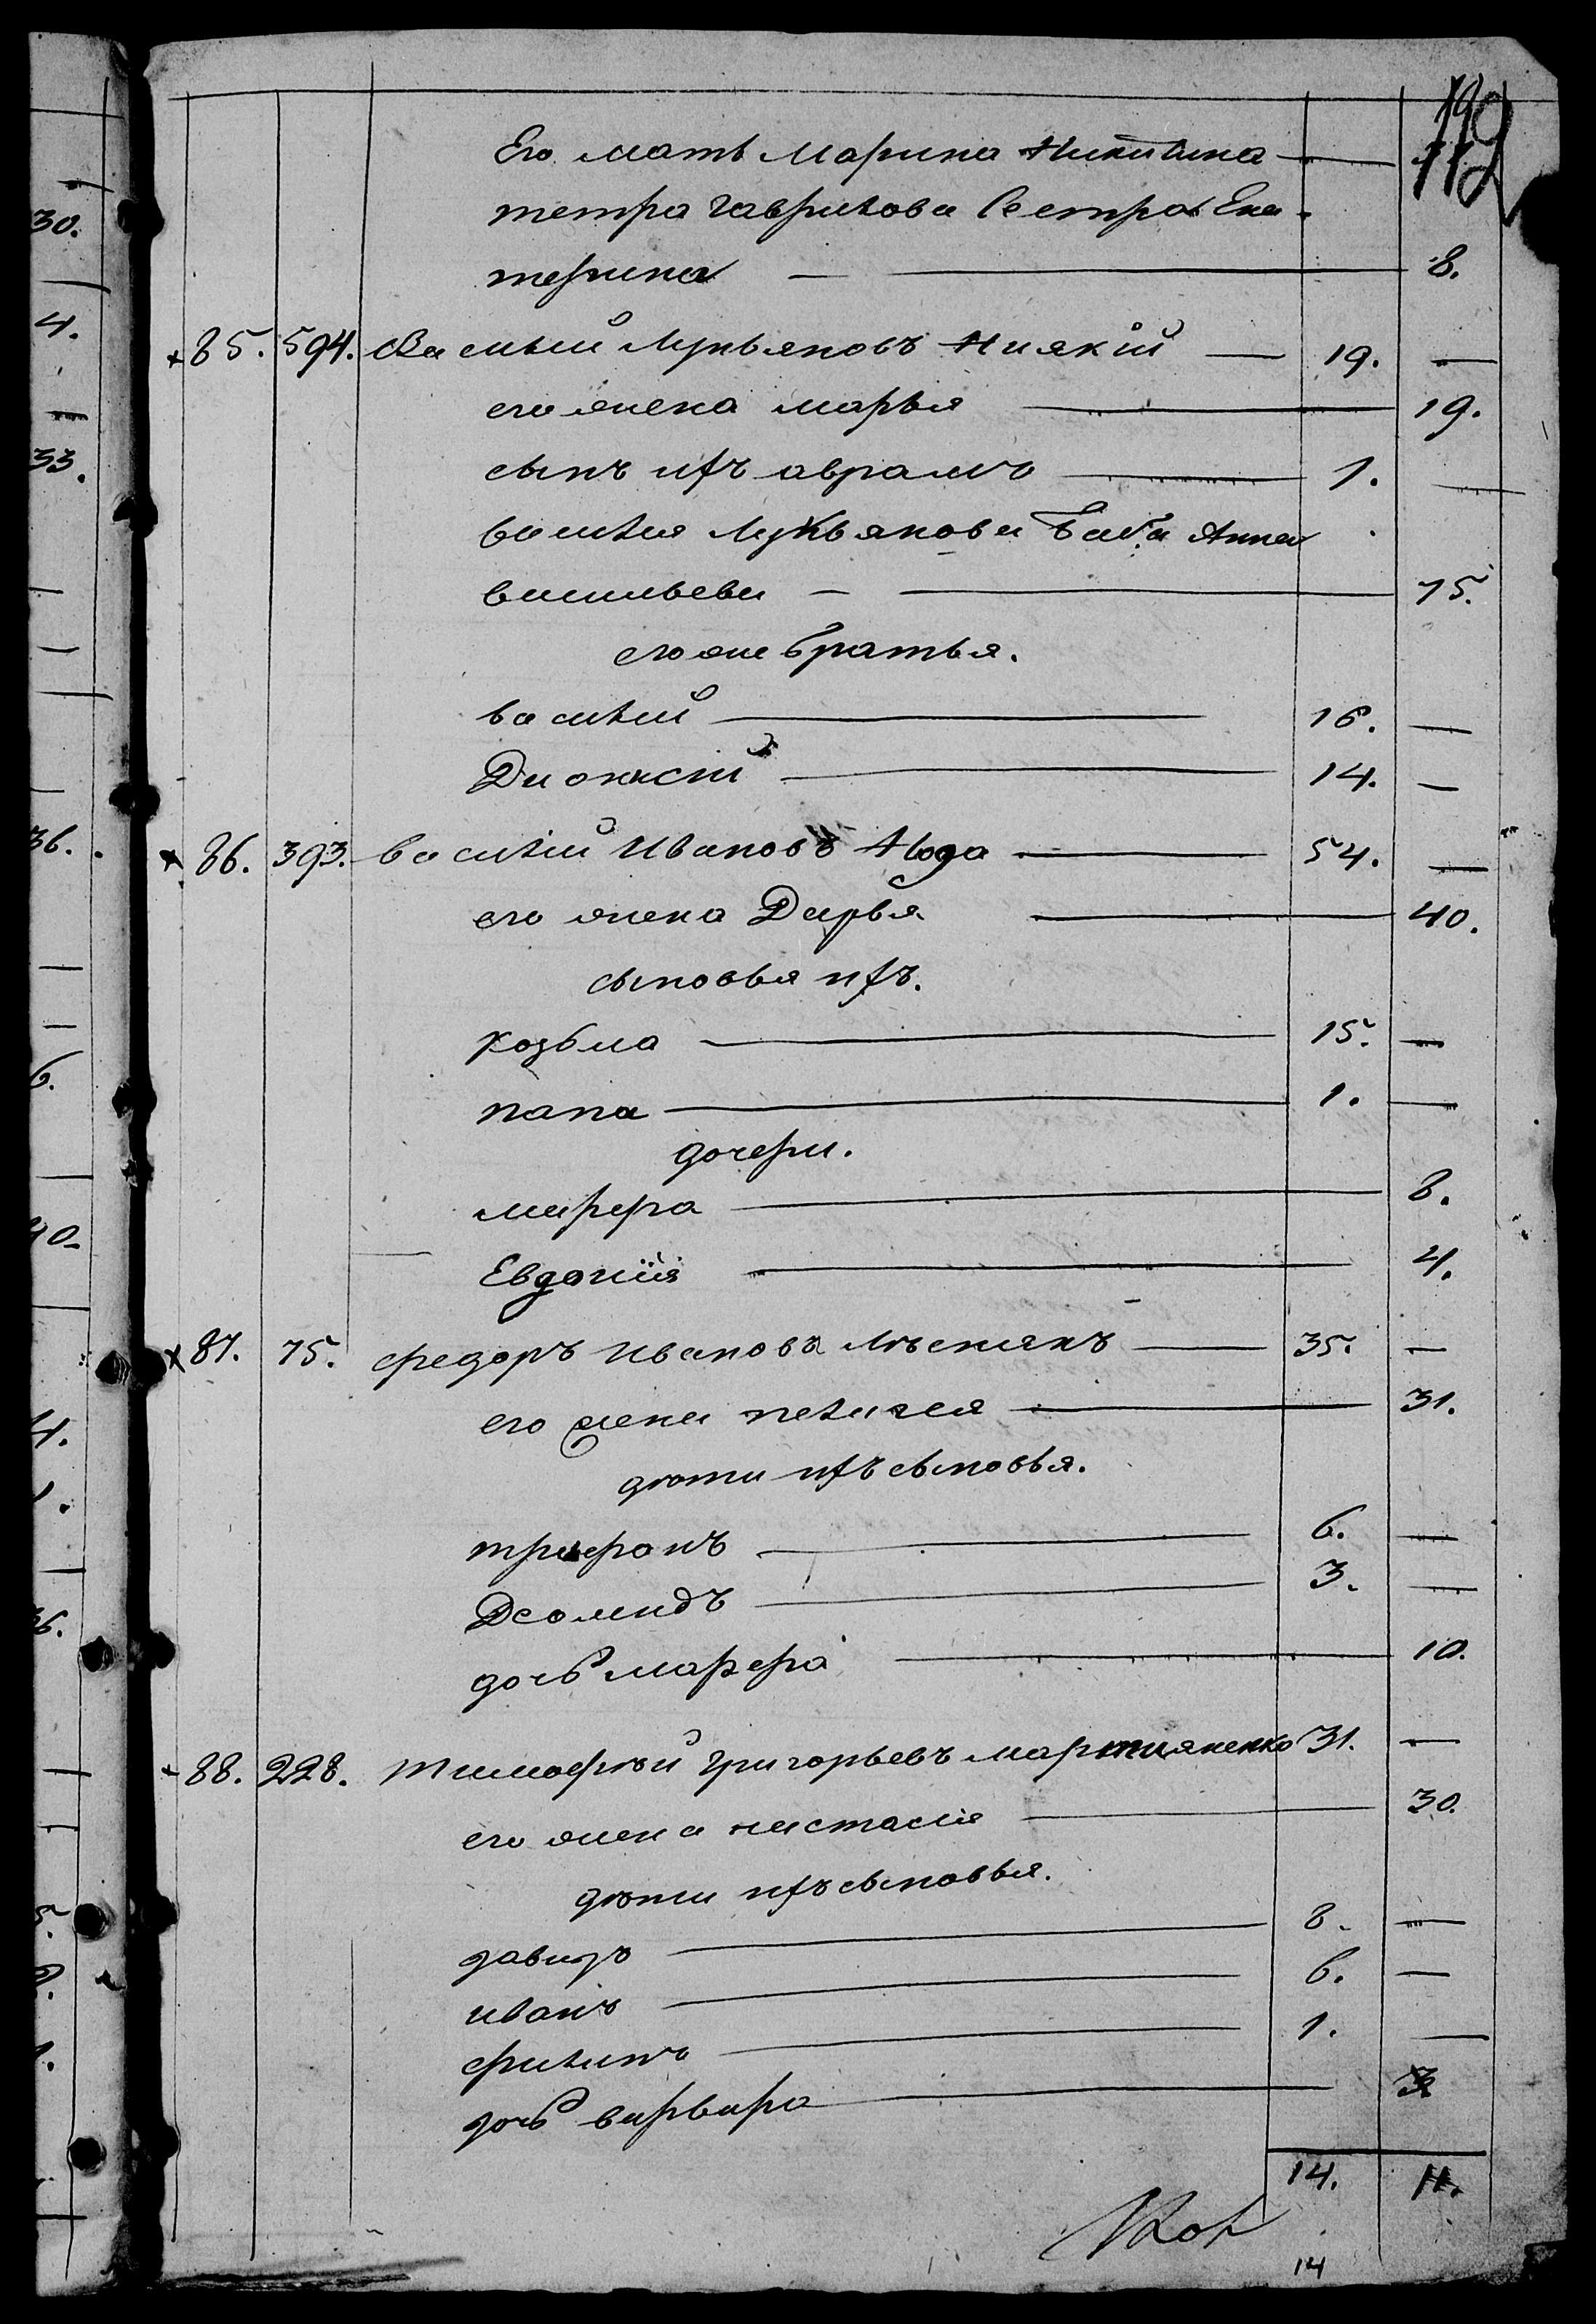 119
112
Его мать Марина Никитина —
Петра Гаврилова Сестра Ека-
терина — 8.
85. 594. Василий Лукьяновъ Ниякій — 19. —
его жена марья — 19.
сынъ ихъ аврамъ — 1. —
василия Лукьянова Баба Анна
васильева — 75.
его же братья.
василий — 16. —
Дионисій — 14. —
86. 393. василий Ивановъ — 54. —
его жена Дарья — 40.
сыновья ихъ.
козьма — 15. —
папа — 1. —
дочери.
марфа — 8.
Евдокія — 4.
87. 75. федоръ Ивановъ — 35. —
его жена пелагея — 31.
дѣти ихъ сыновья.
трифонъ — 6. —
Деомидъ — 3. —
дочь марфа — 10.
88. 228. тимофѣй григорьевъ мартияненко 31. —
его жена настасія — 30.
дѣти ихъ сыновья.
давидъ — 8. —
иванъ — 6. —
филипъ — 1. —
дочь варвара — 3
14. 11.
14